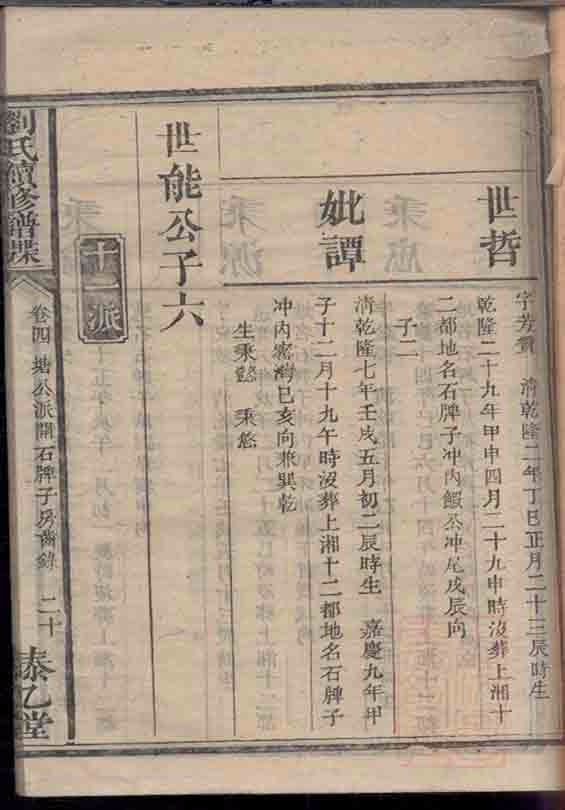 世哲
字芳 清乾隆二年丁巳正月二十三辰時生
乾隆二十九年甲申四月二十九申時沒葬上湘十
二都地名石牌子冲內蝦公冲尾戌辰向
子二
妣譚
清乾隆七年壬戌五月初二辰時生 嘉慶九年甲
子十二月十九午時沒葬上湘十二都地名石牌子
冲內窰灣巳亥向兼巽乾
生秉懿 秉悠
世能公子六
十一派
劉氏續修譜牒
卷四 塘公派開石牌子房齒錄 二十
泰乙堂